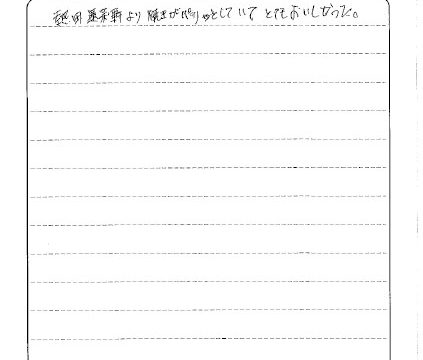 熱田蓬莱軒より焼きがパリッとしていてとてもおいしかった。